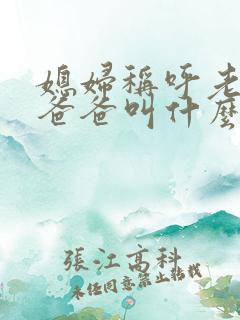 媳婦稱呼老
爸爸叫什麼
張江高科
未經同意禁止轉載